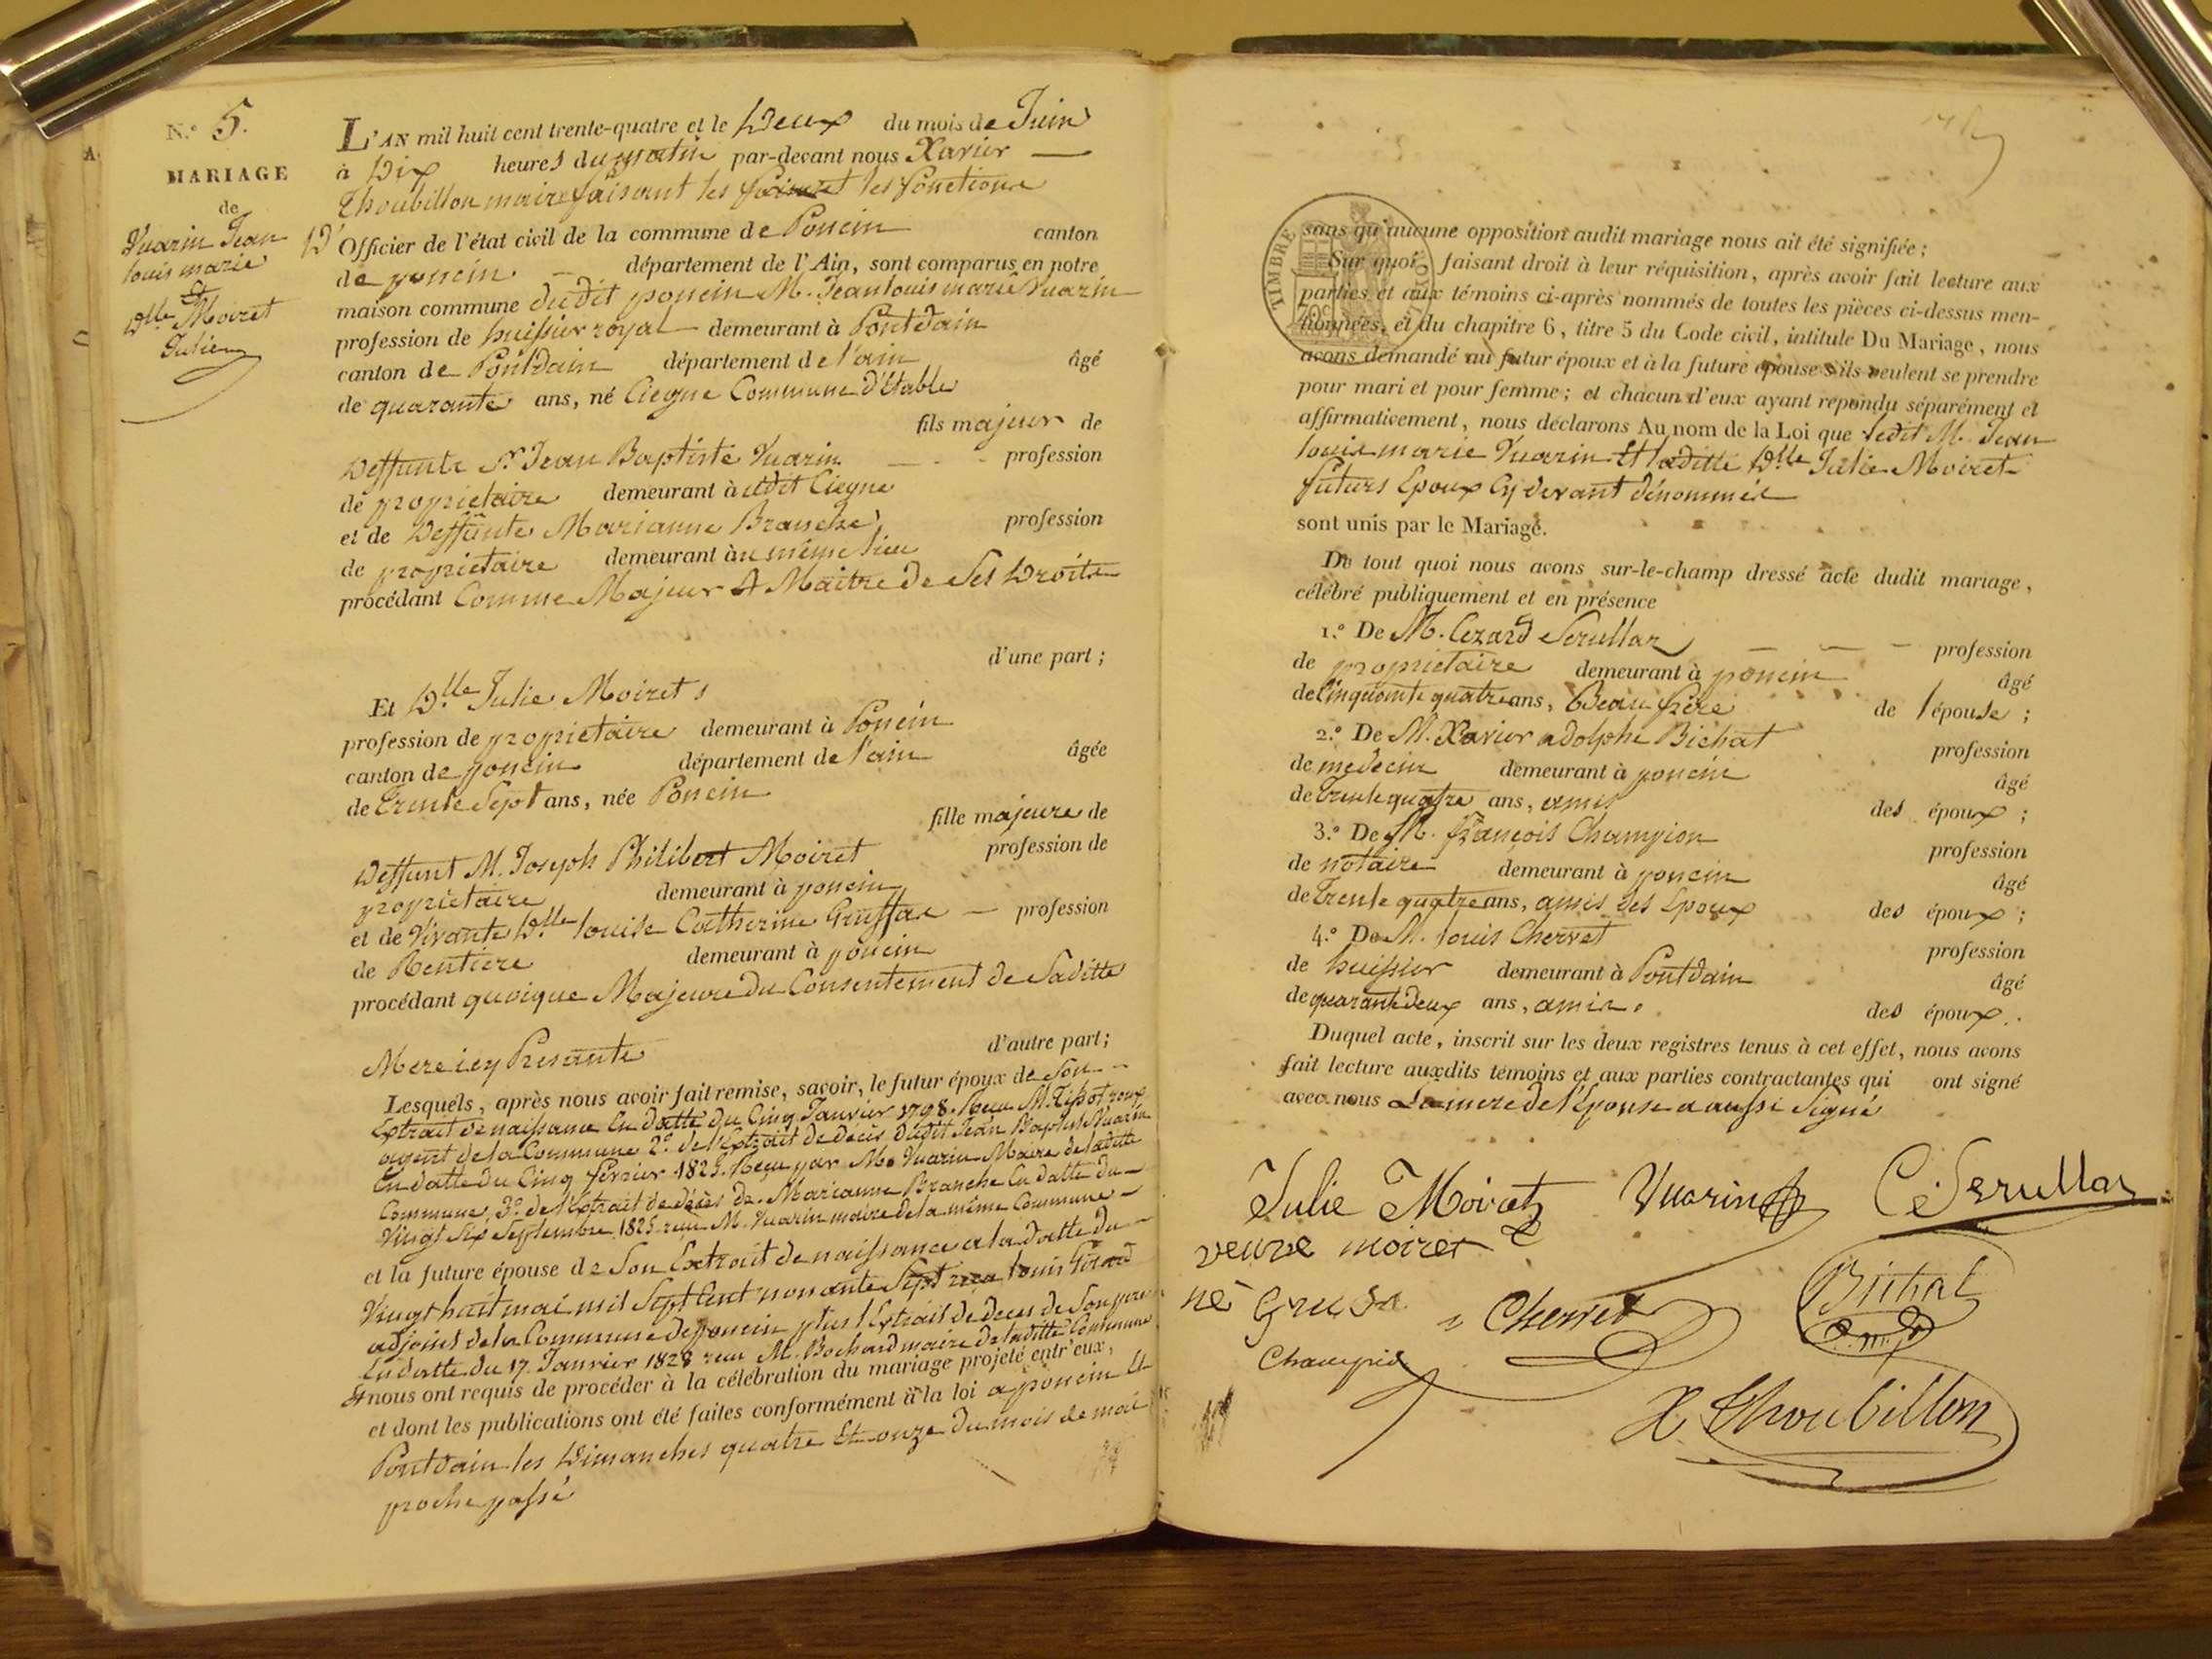 N.o 5.
MARIAGE
de
Vuarin Jean
louis marie
et
Dlle Moiret
Julie
L'AN mil huit cent trente-quatre et le Deux du mois de Juin
à Dix heures du matin par-devant nous Xavier
Thoubillon maire faisant les les fonctions
D' Officier de l'état civil de la commune de Poncin canton
de poncin département de l'Ain, sont comparus en notre
maison commune dudit poncin M. Jean louis marie Vuarin
profession de huissier royal demeurant à Pontdain
canton de Pontdain département de l'ain âgé
de quarante ans, né Ciegne Commune d'étable
fils majeur de
Deffunte Sr Jean Baptiste Vuarin profession
de proprietaire demeurant à udit Ciegne
et de Deffunte Marianne Branche profession
de proprietaire demeurant àu même lieu
procédant Comme Majeur & Maitre de Ses Droits
d'une part ;
Et Dlle Julie Moiret
profession de proprietaire demeurant à Poncin
canton de poncin département de l'ain âgée
de Trente Sept ans, née Poncin
fille majeure de
Deffunt M. Joseph Philibert Moiret profession de
proprietaire demeurant à poncin
et de Vivante Dlle louise Catherine profession
de Rentiere demeurant à poncin
procédant quoique Majeure du Consentement de Saditte
Mere icy Presante d'autre part;
Lesquels, après nous avoir fait remise, savoir, le futur époux de Son
Extrait de naissance En datte du Cinq Janvier 1798. Recu M.
agent de la Commune 2.o de l'Extrait de décès dudit Jean Baptiste Vuarin
En datte du Cinq fevrier 1825. Reçu par Mr Vuarin Maire de laditte
Commune, 3.o de l'Extrait de décès de Marianne Branche En datte du
Vingt Six Septembre 1825. reçu M. Vuarin maire de la même Commune
et la future épouse de Son Extrait de naissance a la datte du
Vingt huit mai mil Sept Cent nonante Sept reçu louis Girard
adjoint de la Commune de poncin plus l'Extrait de deces de Son pere
En datte du 17. Janvier 1828 recu M. Bochard maire de laditte Commune
& nous ont requis de procéder à la célébration du mariage projeté entr'eux,
et dont les publications ont été faites conformément à la loi a poncin Et
Pontdain les Dimanches quatre Et onze du mois de mai
proche passé
sans qu'aucune opposition audit mariage nous ait été signifiée ;
Sur quoi, faisant droit à leur réquisition, après avoir fait lecture aux
parties et aux témoins ci-après nommés de toutes les pièces ci-dessus men-
tionnées, et du chapitre 6, titre 5 du Code civil, intitule Du Mariage, nous
avons demandé au futur époux et à la future épouse s'ils veulent se prendre
pour mari et pour femme ; et chacun d'eux ayant répondu séparément et
affirmativement, nous déclarons Au nom de la Loi que ledit M. Jean
louis marie Vuarin Et laditte Dlle Julie Moiret
futurs Epoux Cy devant dénommés
sont unis par le Mariage.
De tout quoi nous avons sur-le-champ dressé acte dudit mariage,
célébré publiquement et en présence
1.o De M. Cezard Serullaz profession
de proprietaire demeurant à poncin âgé
de Cinquante quatre ans, Beau frere de l'épouse ;
2.o De M. Xavier adolphe Bichat profession
de medecin demeurant à poncin âgé
de Trente quatre ans, amis des époux ;
3.o De M. françois Champion profession
de notaire demeurant à poncin âgé
de Trente quatre ans, amis des Epoux des époux ;
4.o De M. louis Chervet profession
de huissier demeurant à Pontdain âgé
de quarante deux ans, amis. des époux.
Duquel acte, inscrit sur les deux registres tenus à cet effet, nous avons
fait lecture auxdits témoins et aux parties contractantes qui ont signé
avec nous La mere de l'épouse a aussi Signé
Julie Moiret Vuarin C Serullaz
veuve moiret
né Chervet Bichat
Champion
X Thoubillon
TIMBRE ROYAL